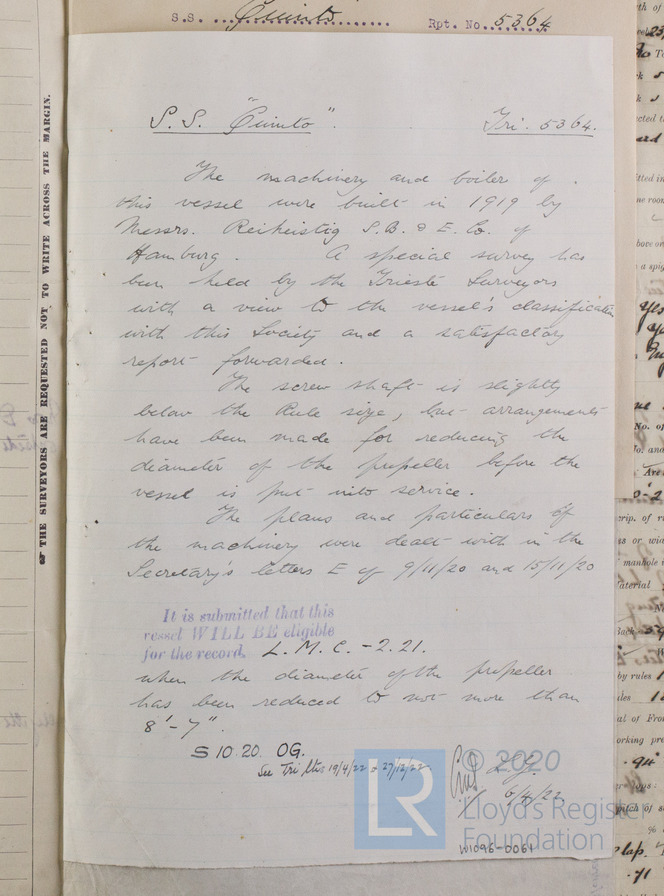 S.S. Quinto Rpt. No. 5364
THE SURVEYORS ARE REQUESTED NOT TO WRITE ACROSS THE MARGIN.
S.S. "Quinto". Tri. 5364.
The machinery and boiler of
this vessel were built in 1919 by
Messrs. Reiherstig S.B. & E. Co. of
Hamburg. A special survey has
been held by the Trieste Surveyors
with a view to the vessel's classification
with this Society and a satisfactory
report forwarded.
The screw shaft is slightly
below the Rule size, but arrangements
have been made for reducing the
diameter of the propeller before the
vessel is put into service.
The plans and particulars of
the machinery were dealt with in the
Secretary's letters E of 9/11/20 and 15/11/20
It is submitted that this
vessel WILL BE eligible
for the record. L.M.C. - 2.21.
when the diameter of the propeller
has been reduced to not more than
8'-7".
S 10.20. OG.
See Tri ltrs 19/4/22 & 27/12/22
6/4/22
© 2020
LR
Lloyd's Register
Foundation
W1096-0061